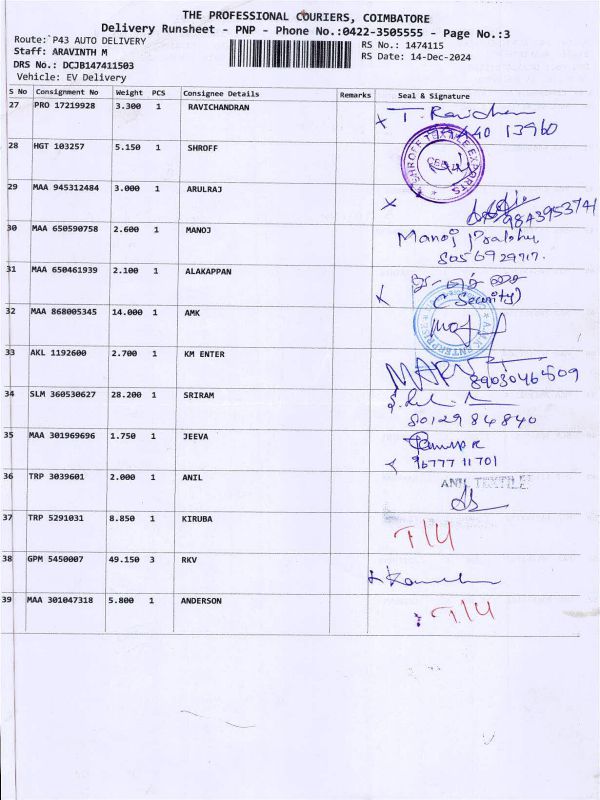 THE PROFESSIONAL COURIERS, COIMBATORE
Delivery Runsheet - PNP - Phone No.:0422-3505555 - Page No.:3
Route: P43 AUTO DELIVERY
RS No.: 1474115
Staff: ARAVINTH M
RS Date: 14-Dec-2024
DRS No.: DCJB147411503
Vehicle: EV Delivery
S No Consignment No Weight PCS Consignee Details Remarks Seal & Signature
27 PRO 17219928 3.300 1 RAVICHANDRAN
13960
28 HGT 103257 5.150 1 SHROFF
SHROFF TEXTILE EXPORTS
29 MAA 945312484 3.000 1 ARULRAJ
9843953741
30 MAA 650590758 2.600 1 MANOJ Manoj Prabhu
8056929717.
31 MAA 650461939 2.100 1 ALAKAPPAN
(Security)
32 MAA 868005345 14.000 1 AMK
33 AKL 1192600 2.700 1 KM ENTER
34 SLM 360530627 28.200 1 SRIRAM
8012984840
35 MAA 301969696 1.750 1 JEEVA
9677711701
36 TRP 3039601 2.000 1 ANIL ANIL TEXTILE
37 TRP 5291031 8.850 1 KIRUBA
38 GPM 5450007 49.150 3 RKV
39 MAA 301047318 5.800 1 ANDERSON